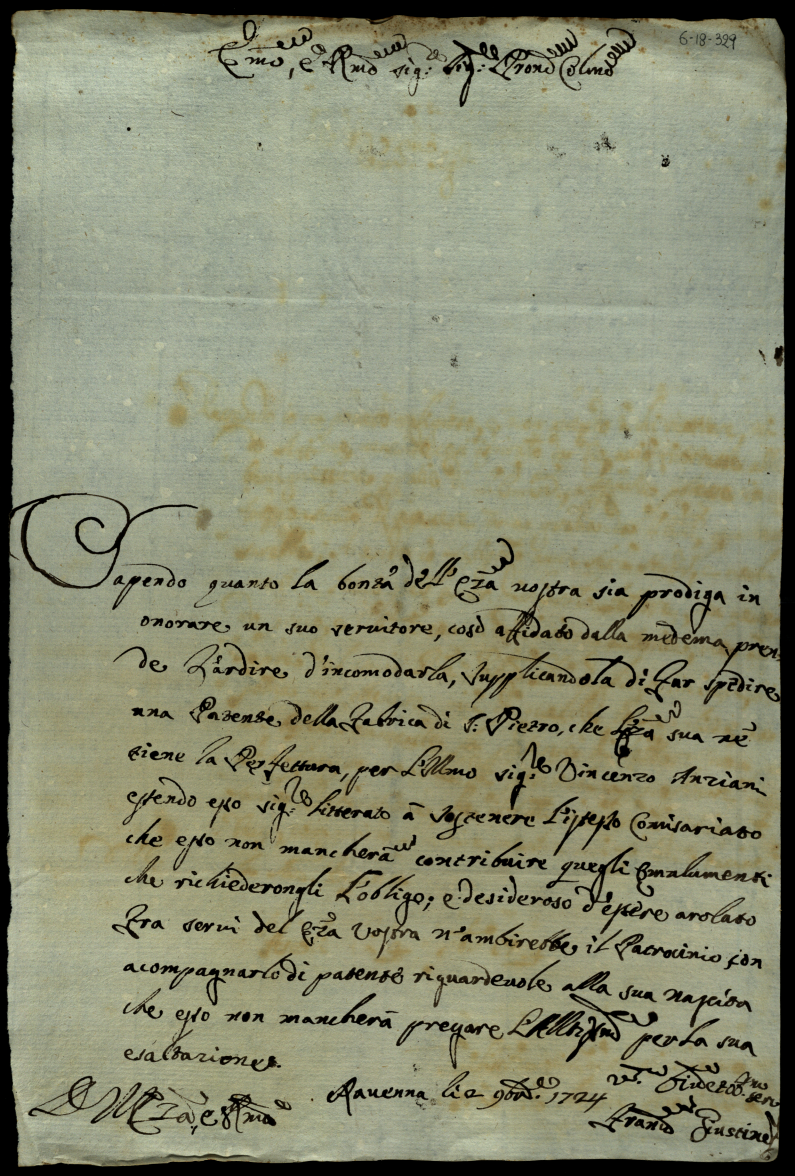 6-18-329
Emo, e Rmo Sig: Sig: Prone Colmo
Sapendo quanto la bontà dell' Eza vostra sia prodiga in
onorare un suo servitore, così affidato dalla medema pren
de l'ardire d'incomodarla, supplicandola di far spedire
una Patente della Fabrica di S. Pietro, che l'Eza sua ne
tiene la Perfettura, per l'Illmo sig:re Vincenzo Anziani
essendo esso sig:re litterato à sostenere l'istesso Comisariato
che esso non mancherà contribuire quegli Emulumenti
che richiederongli l'obligo; e desideroso d'essere arolato
fra servi del Eza Vostra n'ambirebbe il Patrocinio con
acompagnarlo di patente riguardevole alla sua nascita
che esso non mancherà pregare l'Altissmo per la sua
esaltazione.
D V Eza, e Rma
Ravenna li 2 9bre 1724
Franco Giustine